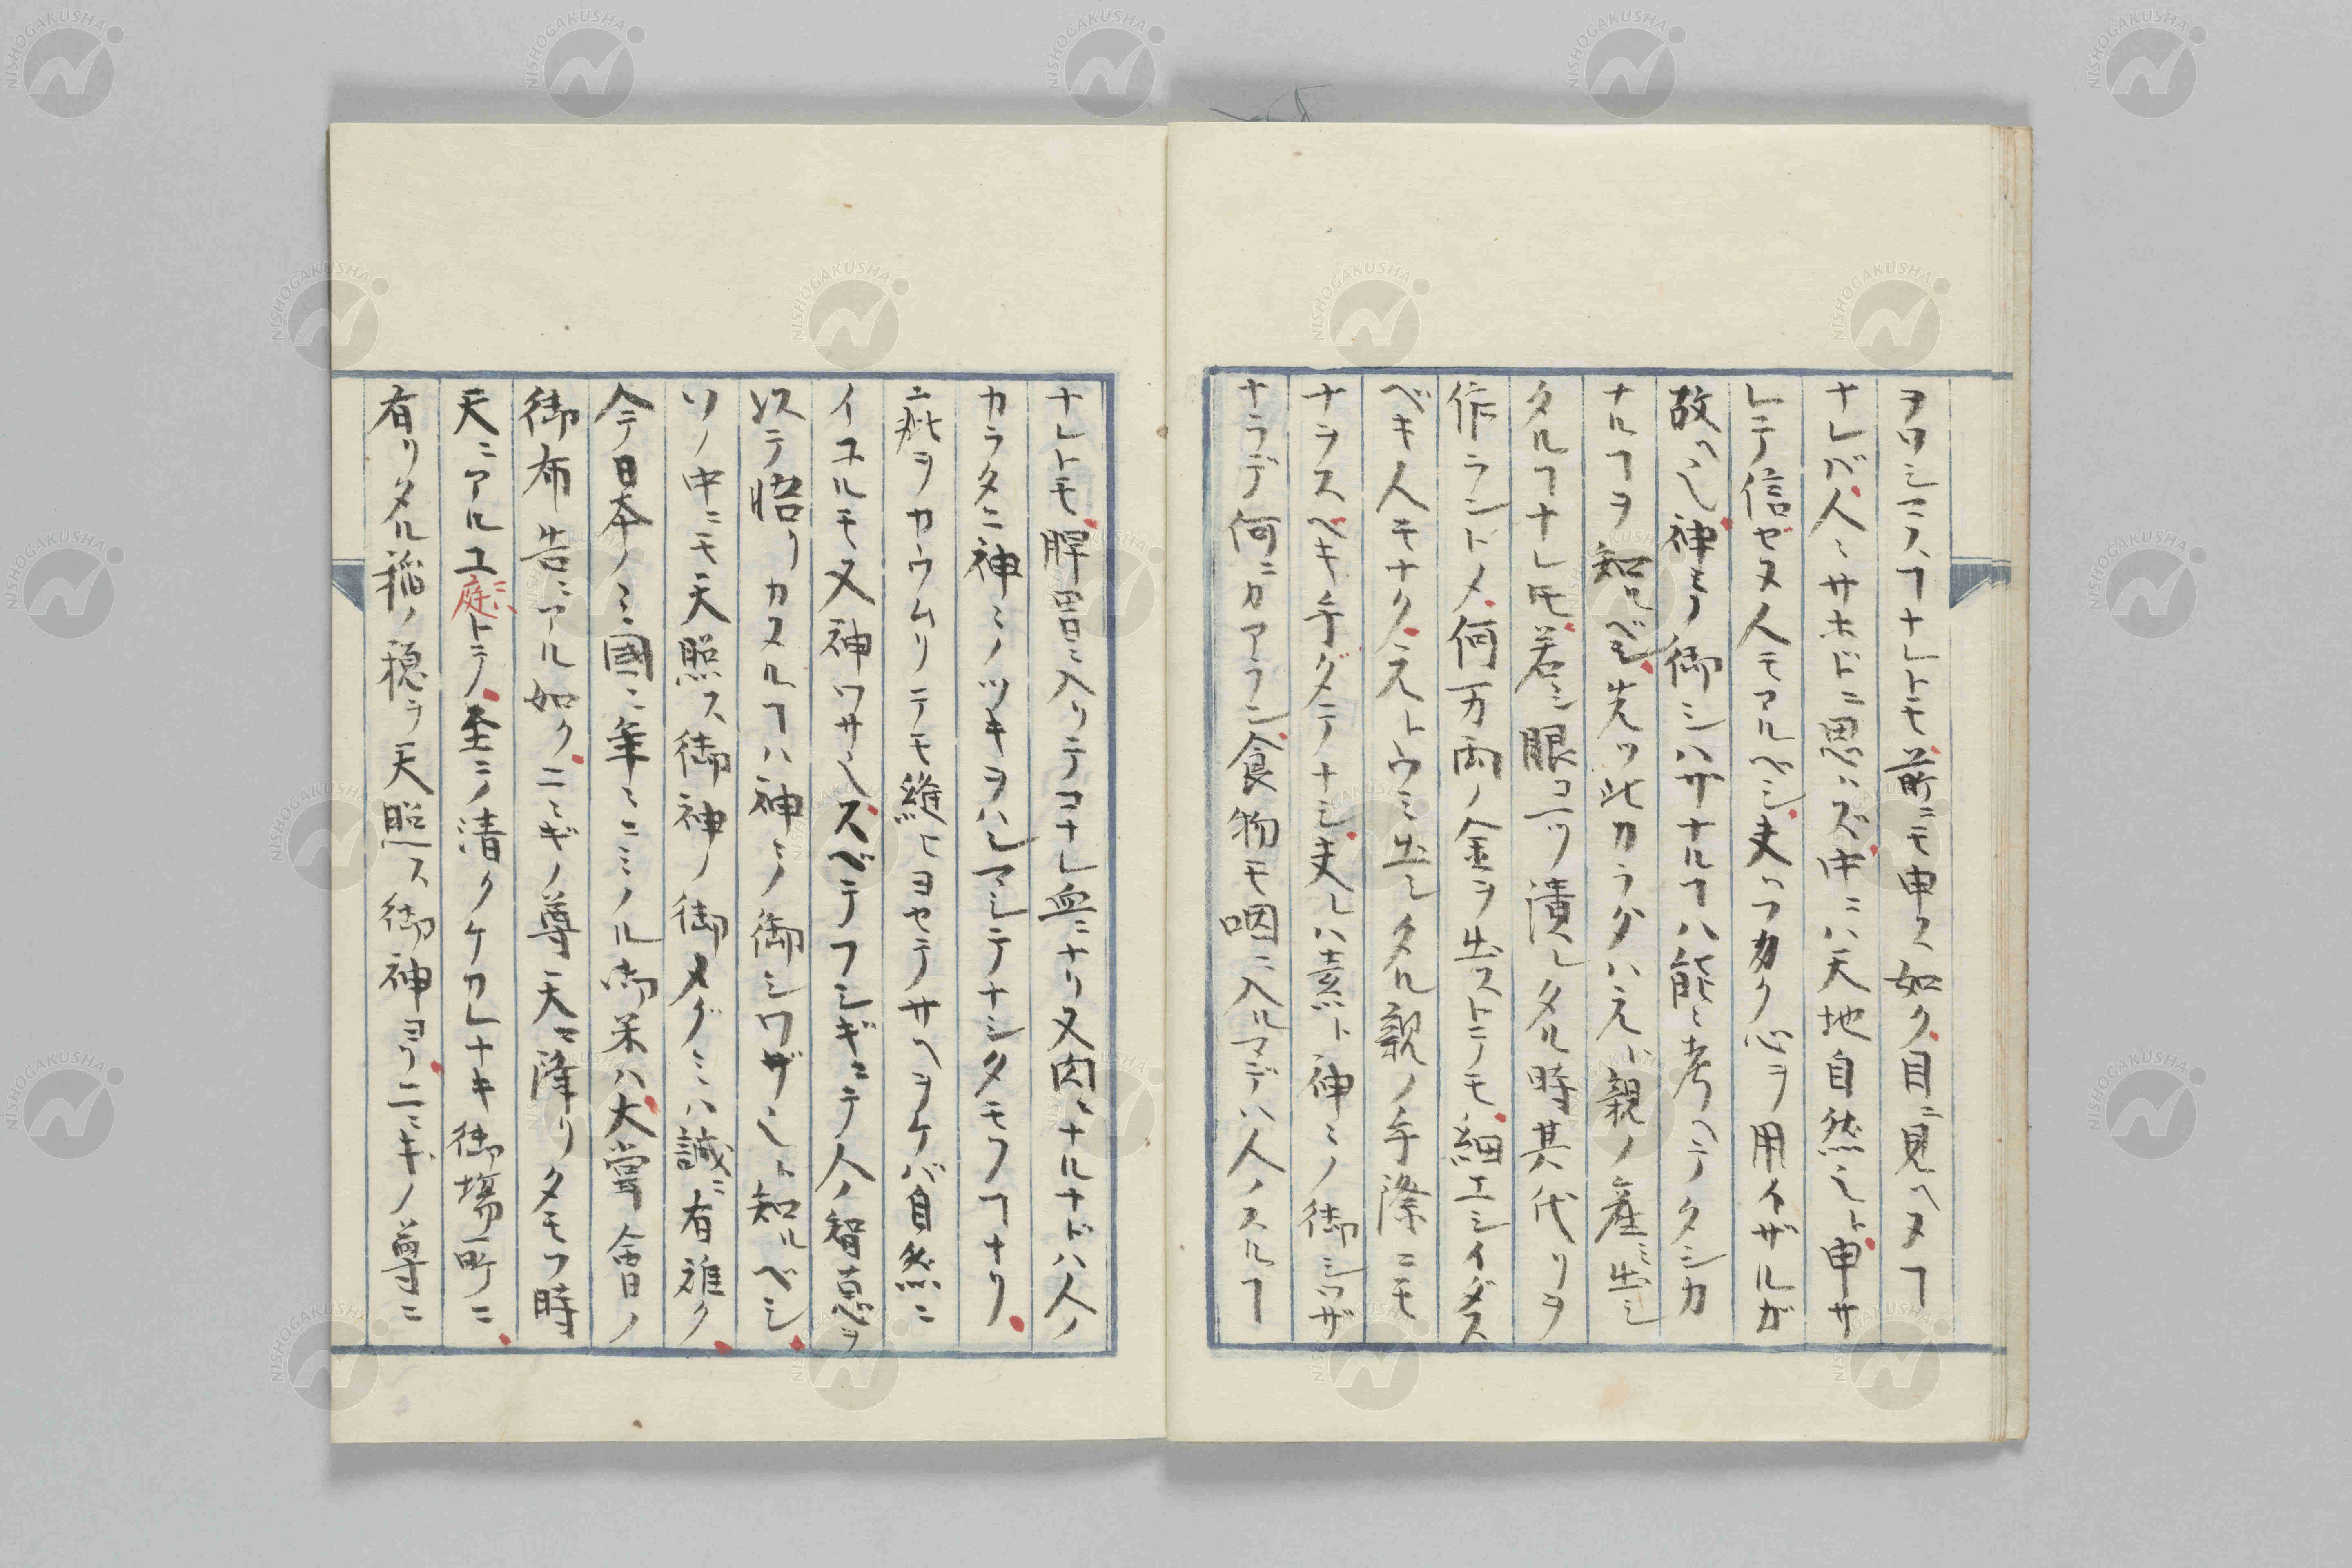 ヲワシマスヿナレトモ前ニモ申ス如ク目ニ見ヘヌヿ
ナレバ人ミサホドニ思ハズ中ニハ天地自然也ト申サ
レテ信ゼヌ人モアルベシ夫ハフカク心ヲ用イザルガ
故ヘ也神ミノ御シハザナルヿハ能ミ考ヘテタシカ
ナルヿヲ知ルベシ先ツ此カラダハ元ト親ノ産ミ出シ
タルヿナレ𪜈若シ眼コ一ツ潰レタル時其代リヲ
作ラントメ何万両ノ金ヲ出ストテモ細エシイダス
ベキ人モナク元トウミ出シタル親ノ手際ニモ
ナヲスベキ手ダテナシ夫レハ素ト神ミノ御シワザ
ナラデ何ニカアラン食物モ咽ニ入ルマデハ人ノスルヿ
ナレトモ脾胃ニ入リテコナレ血ニナリ又肉ニナルナドハ人ノ
カラタニ神ミノツキヲハシマシテナシタモフヿナリ
ニ疵ヲカウムリテモ縫ヒヨセテサヘヲケバ自然ニ
イユルモ又神ワサ也スベテフシギニテ人ノ智恵ヲ
以テ悟リカヌルヿハ神ミノ御シワザ也ト知ルベシ
ソノ中ニモ天照ス御神ノ御メグミハ誠ニ有難ク
今テ日本ノミ國ニ年ミニミノル御米ハ大嘗會ノ
御布告ニアル如クニニギノ尊天ヨ降リタモフ時
天ニアルユ庭ニハトテ至ニノ清クケカレナキ御場所ニ
有リタル稲ノ穂ヲ天照ス御神ヨリニニギノ尊ニ
NISHOGAKUSHA